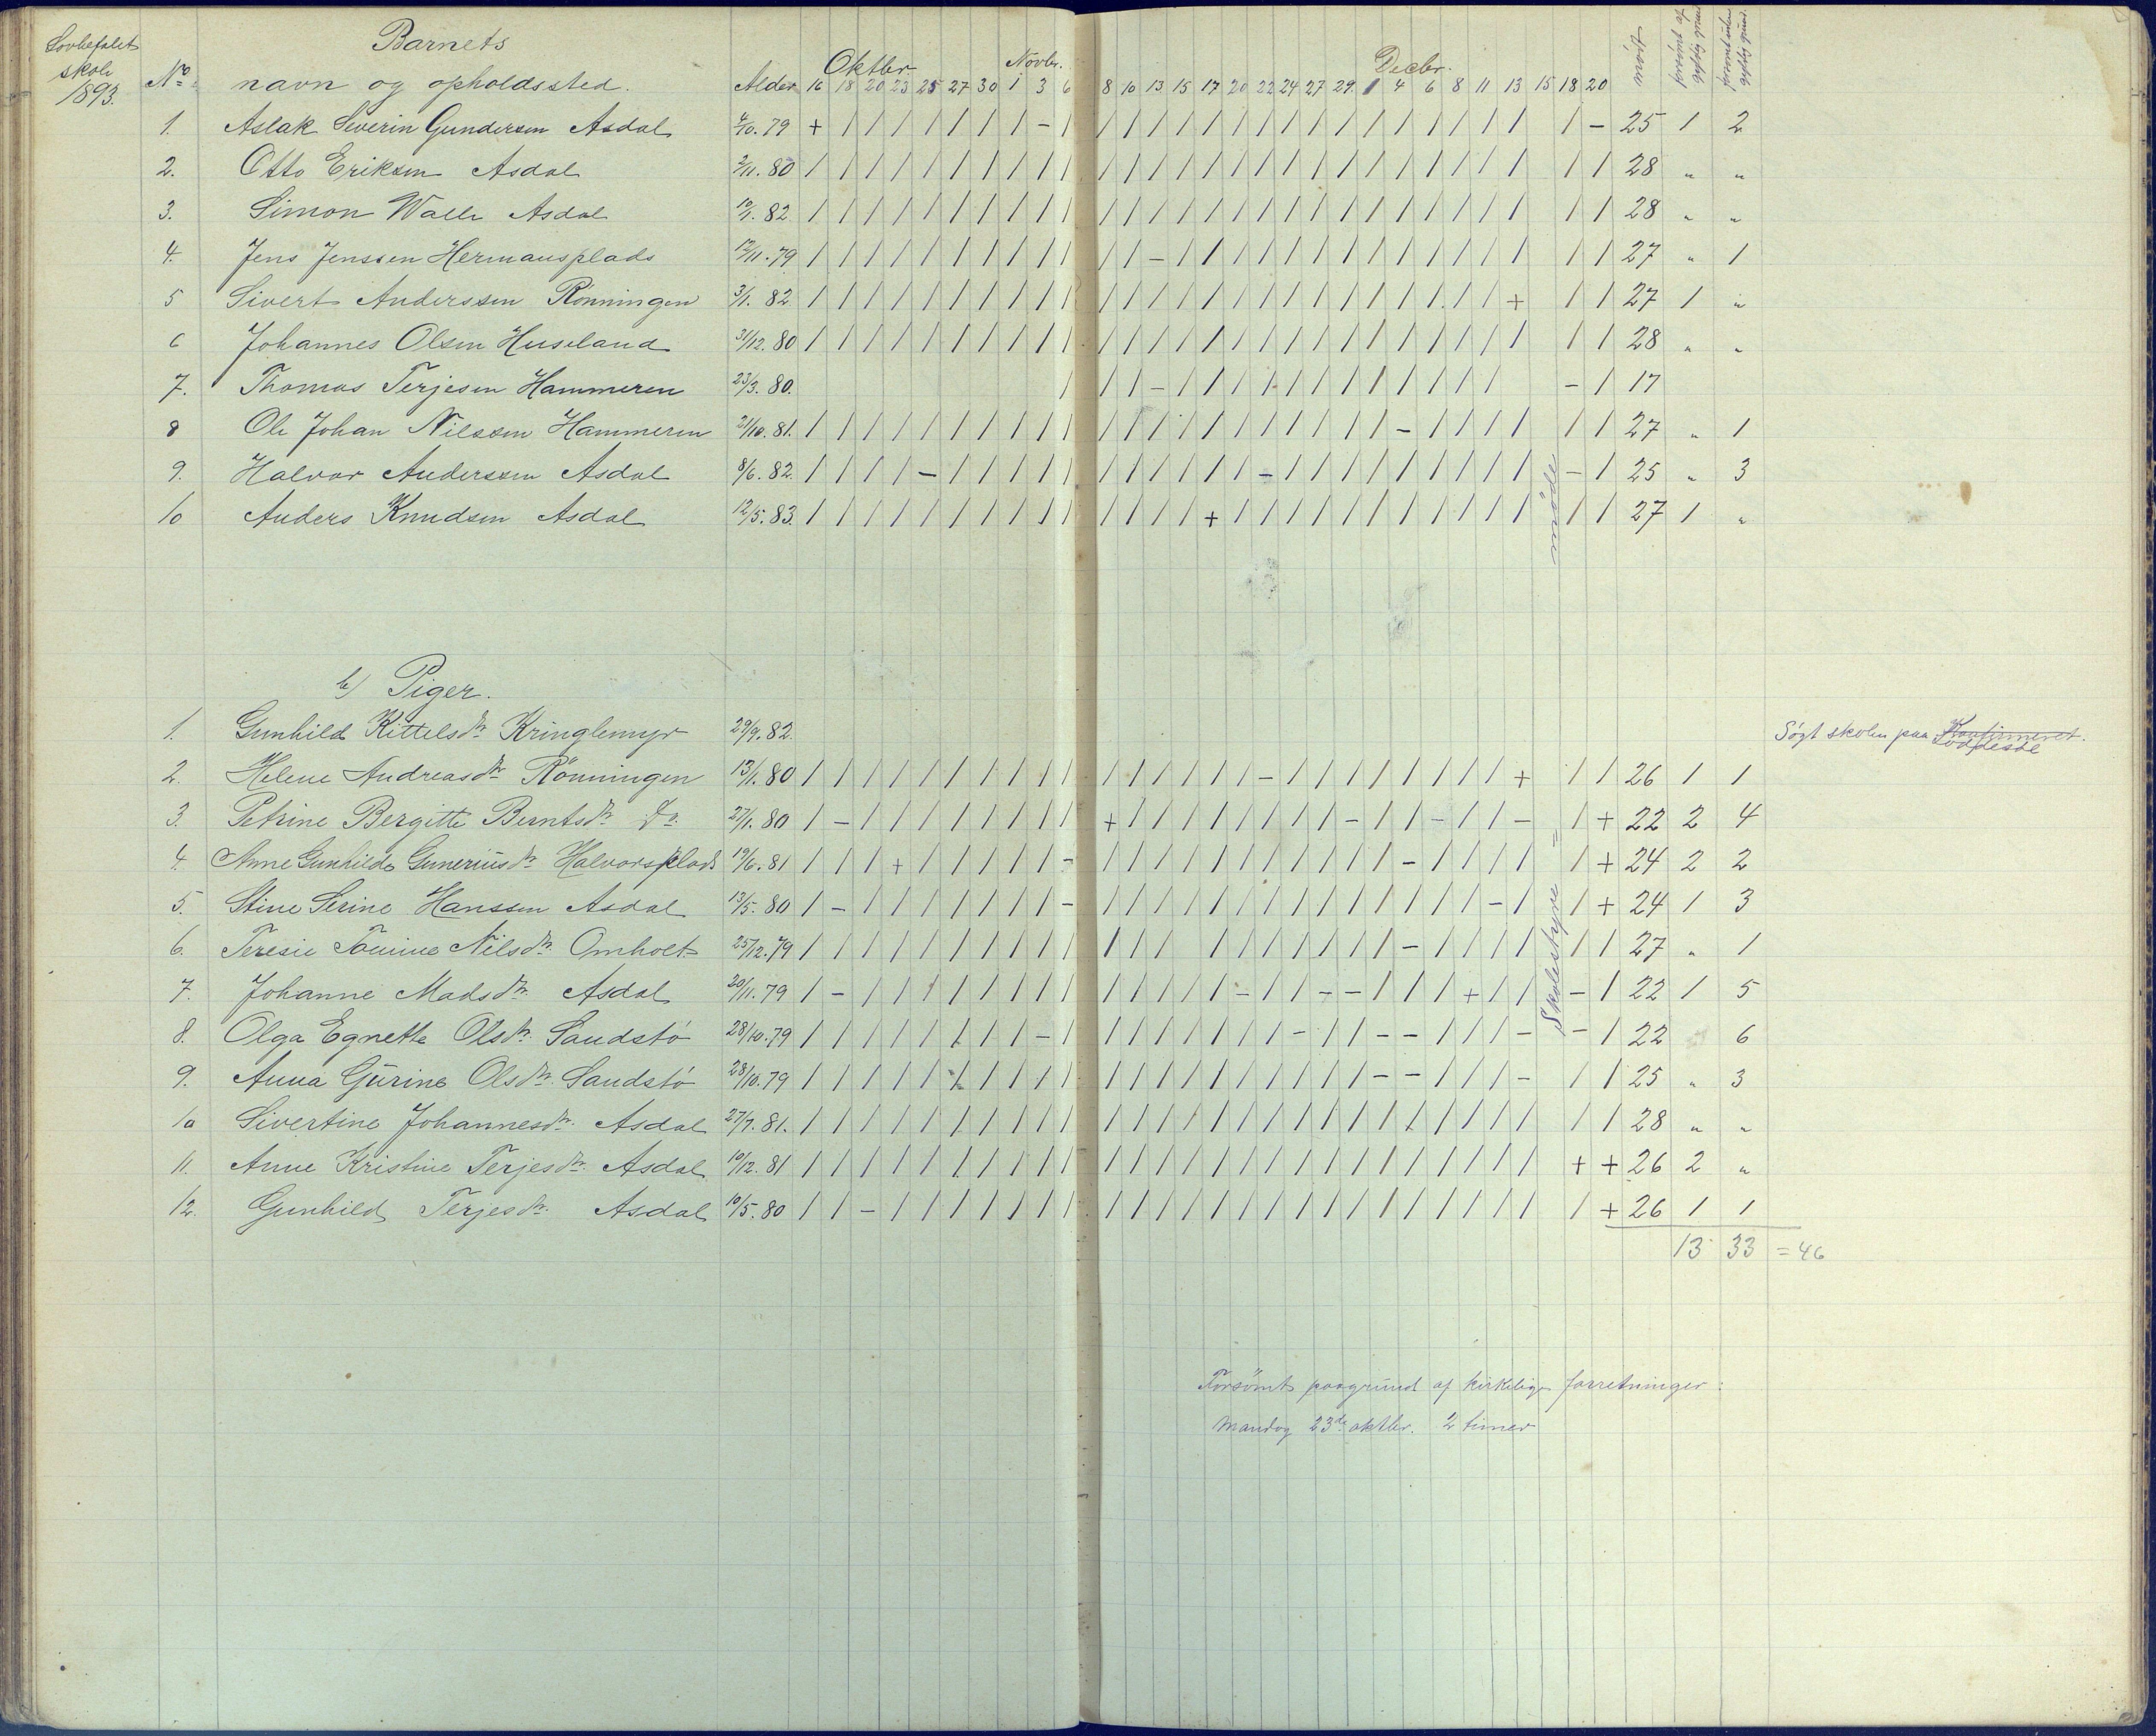 Lovbefalet
skole
1893.
Barnets
Oktbr. Novbr. Decbr.
No navn og opholdssted. Alder 16 18 20 23 25 27 30 1 3 6 8 10 13 15 17 20 22 24 27 29 1 4 6 8 11 13 15 18 20 mödt forsömt af gyldig grund forsömt uden gyldig grund.
1. Aslak Severin Gundersen Asdal 2/10. 79 + / / / / / / / - / / / / / / / / / / / / / / / / / / - 25 1 2
2. Otto Eriksen Asdal 2/11. 80 / / / / / / / / / / / / / / / / / / / / / / / / / / / / 28 " "
3. Simon Walle Asdal 10/1. 82 / / / / / / / / / / / / / / / / / / / / / / / / / / / / 28 " "
4. Jens Jenssen Hermansplads 12/11. 79 / / / / / / / / / / / / - / / / / / / / / / / / / / / / 27 " 1
5 Sivert Anderssen Rönningen 3/1. 82 / / / / / / / / / / / / / / / / / / / / / / / / / + / / 27 1 "
6 Johannes Olsen Huseland 31/12. 80 / / / / / / / / / / / / / / / / / / / / / / / / / / / / 28 " "
7. Thomas Terjesen Hammeren 23/3. 80. / / / - / / / / / / / / / / / - / 17
8 Ole Johan Nilssen Hammeren 21/10. 81. / / / / / / / / / / / / / / / / / / / / / - / / / / / / 27 " 1
9. Halvor Anderssen Asdal 8/6. 82. / / / / - / / / / / / / / / / / - / / / / / / / / / - / 25 " 3
10 Anders Knudsen Asdal 12/5. 83. / / / / / / / / / / / / / / + / / / / / / / / / / / / / 27 1 "
Skolestyre = möde
b) Piger.
1. Gunhild Kittelsdr. Kringlemyr 29/9. 82. Sögt skolen paa Konfirmeret. Loddesöl
2. Helene Andreasdr. Rönningen 13/1. 80 / / / / / / / / / / / / / / / / - / / / / / / / / + / / 26 1 1
3. Petrine Bergitte Berntsdr. Do. 27/1. 80 / - / / / / / / / / + / / / / / / / / - / / - / / - / + 22 2 4
4. Anne Gunhilde Guneriusdr. Halvorsplads 19/6. 81 / / / + / / / / / - / / / / / / / / / / / - / / / / / + 24 2 2
5. Stine Serine Hanssen Asdal 13/5. 80 / - / / / / / / / - / / / / / / / / / / / / / / - / / + 24 1 3
6. Teresie Tomine Nilsdr. Omholt 25/12. 79 / / / / / / / / / / / / / / / / / / / / - / / / / / / 27 " 1
7. Johanne Madsdr. Asdal 20/11. 79 / - / / / / / / / / / / / / / - / / - - / / / + / / - / 22 1 5
8. Olga Egnette Olsdr. Sandstö 28/10. 79 / / / / / / / / - / / / / / / / / - / / - - / / / - - / 22 6
9. Anna Gurine Olsdr. Sandstö 28/10. 79 / / / / / / / / / / / / / / / / / / / / - - / / / - / / 25 " 3
10 Sivertine Johannesdr. Asdal 27/7. 81. / / / / / / / / / / / / / / / / / / / / / / / / / / / / 28 " "
11. Anne Kristine Terjesdr. Asdal 10/12. 81 / / / / / / / / / / / / / / / / / / / / / / / / / / + + 26 2 "
12. Gunhild Terjesdr. Asdal 10/5. 80 / / - / / / / / / / / / / / / / / / / / / / / / / / / + 26 1 1
13 33 = 46
Forsömt paagrund af kirkelige forretninger:
Mandag 23de oktbr. 2 timer